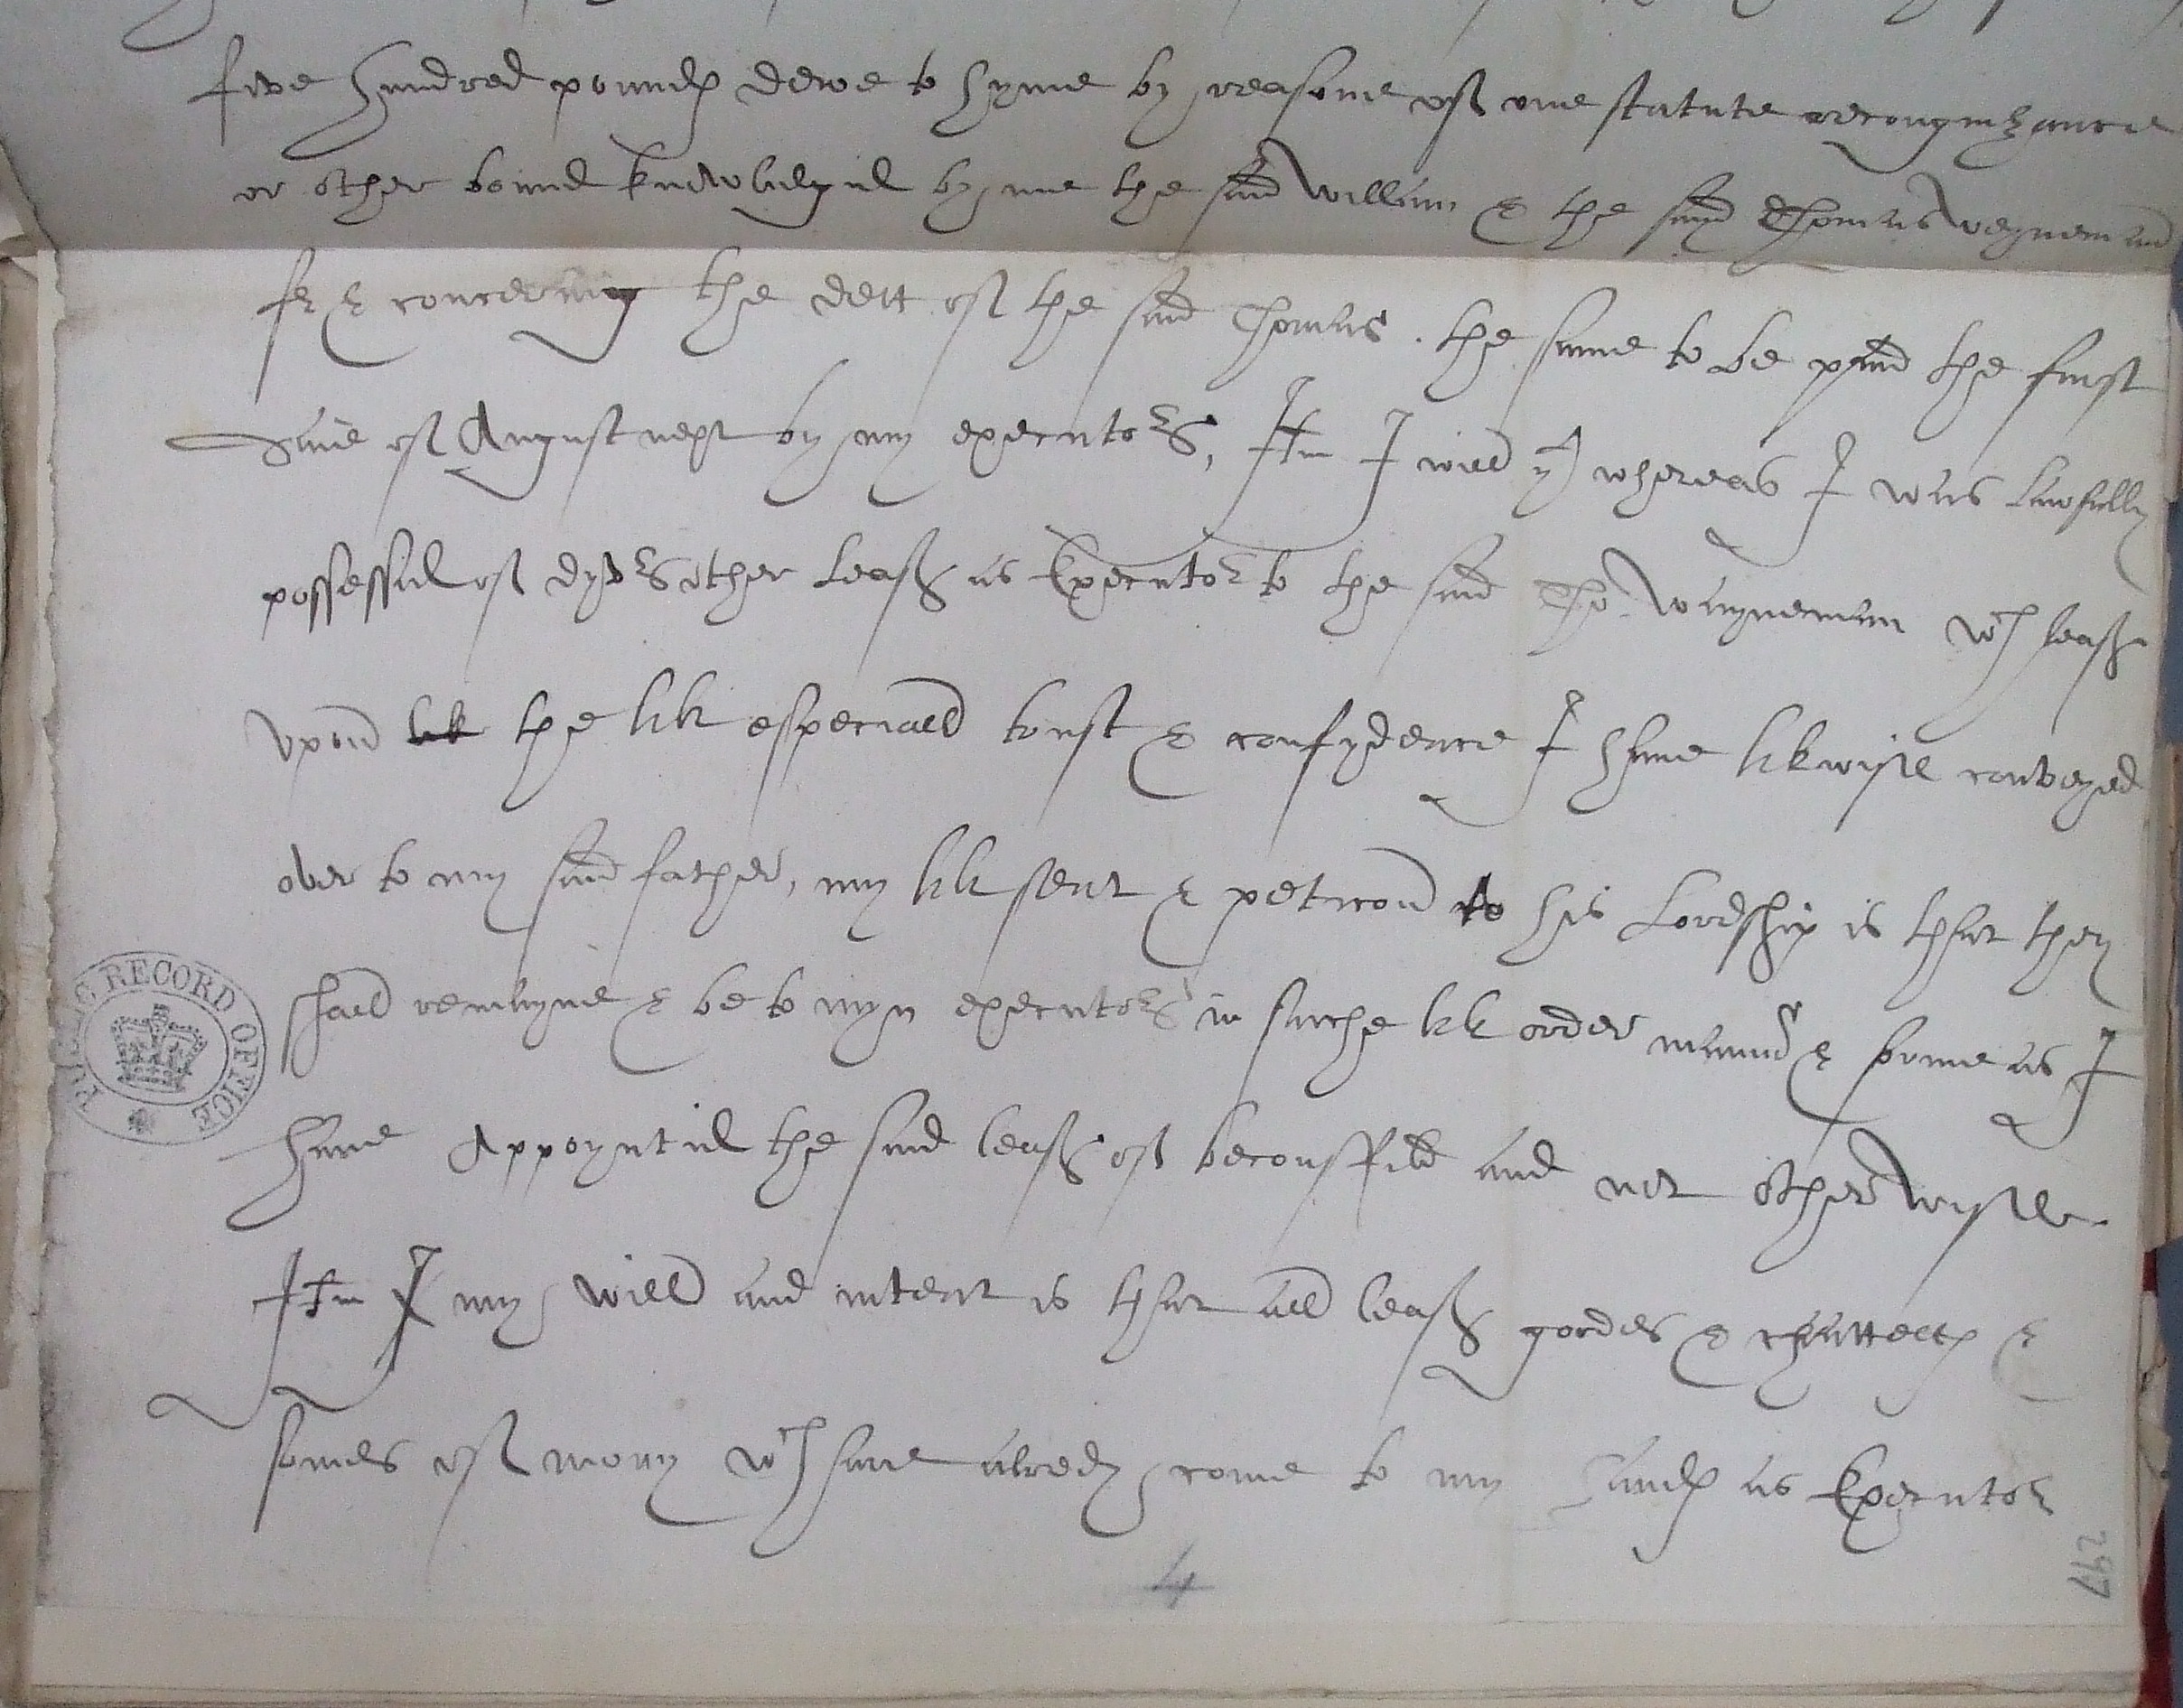 five hundred pounds dewe to hyme by reasone of one statute recongnizance
or other bound knowledgid by me the said William & the said Thomas Weyneman
for & concerning the dett of the said Thomas. the same to be paid the first
daie of August next by my executors, Itm I will yt whereas I was lawfully
possessid of dyvrs other leases as Executor to the said Tho. Wayneman wch leases
upon the lik especiall trust & confydence I have likwise conveyed
over to my said father, my lik sute & peticon to his Lordship is that they
shall remayne & be to myn executors in suche lik order manner & forme as I
have appoynted the said leases of beconsffild and not otherwysse
Itm my will and intent is that all leases goodes & chattells &
somes of mony wch have alredy come to my hands as Executor
PUBLIC RECORD OFFICE
4
297